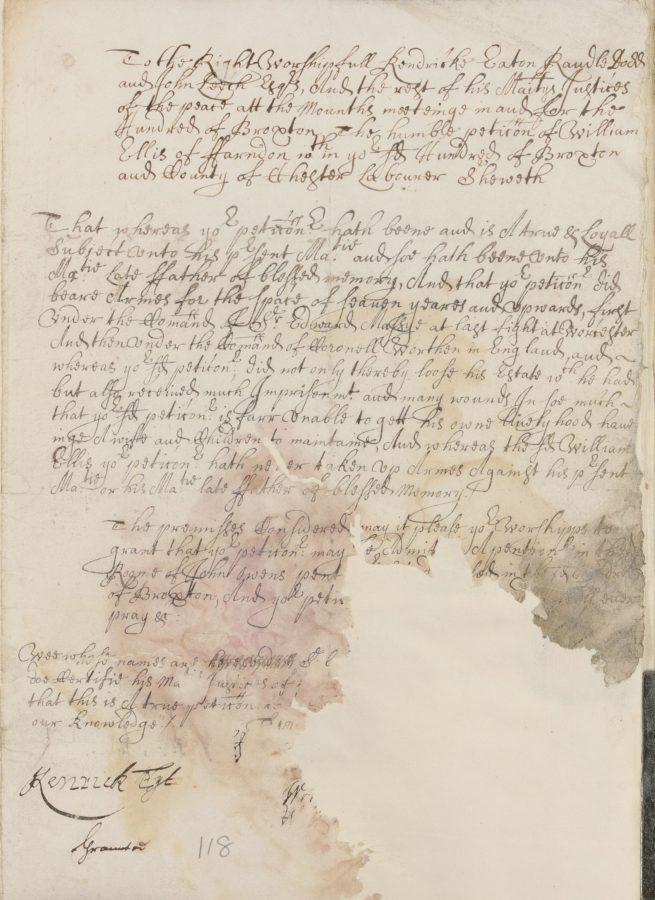 To the Right Worshipfull Kendricke Eaton Randle Dodd
and John Leech Esqrs, And the rest of his Maitys Justices
of the peace att the Mounths meeteinge in and for the
Hundred of Broxton The humble peticōn of William
Ellis of ffarndon wth in yor sd Hundred of Broxton
and County of Chester Labourer Sheweth
That whereas yor peticōnr hath beene and is A true & Loyall
Subject unto his psent Matie and soe hath beene unto his
Matie Late ffather of blessed memory, And that yor peticōnr did
beare Armes for the space of seaven yeares and upwards, first
Under the Comand of Sr Edward Massye at last fight at Worcester
And then under the Comand of Coronell Werthen in England, and
whereas yor sd peticonr: did not only thereby loose his Estate wch he had
but also received much Imprisonmt and many wounds In soe much
that yor sd peticonr: is farr unable to gett his owne livelyhood have
inge A wife and Children to maintaine, And whereas the sd William
Ellis yor peticonr hath never taken up Armes Against his psent
Matie or his Matie late ffather of blessed Memory /
The premisses Considered may it please yor Worshipps to
grant that yor peticonr: may be Admit A pentionr in the
Roome of John Owens pent
of Broxton, And yor peti ever
pray &c
Wee whose names are hereunder
doe Certifie his Ma Justices of
that this is A true peticon
our knowledge /
Kenrick Eyt
Graunted
118